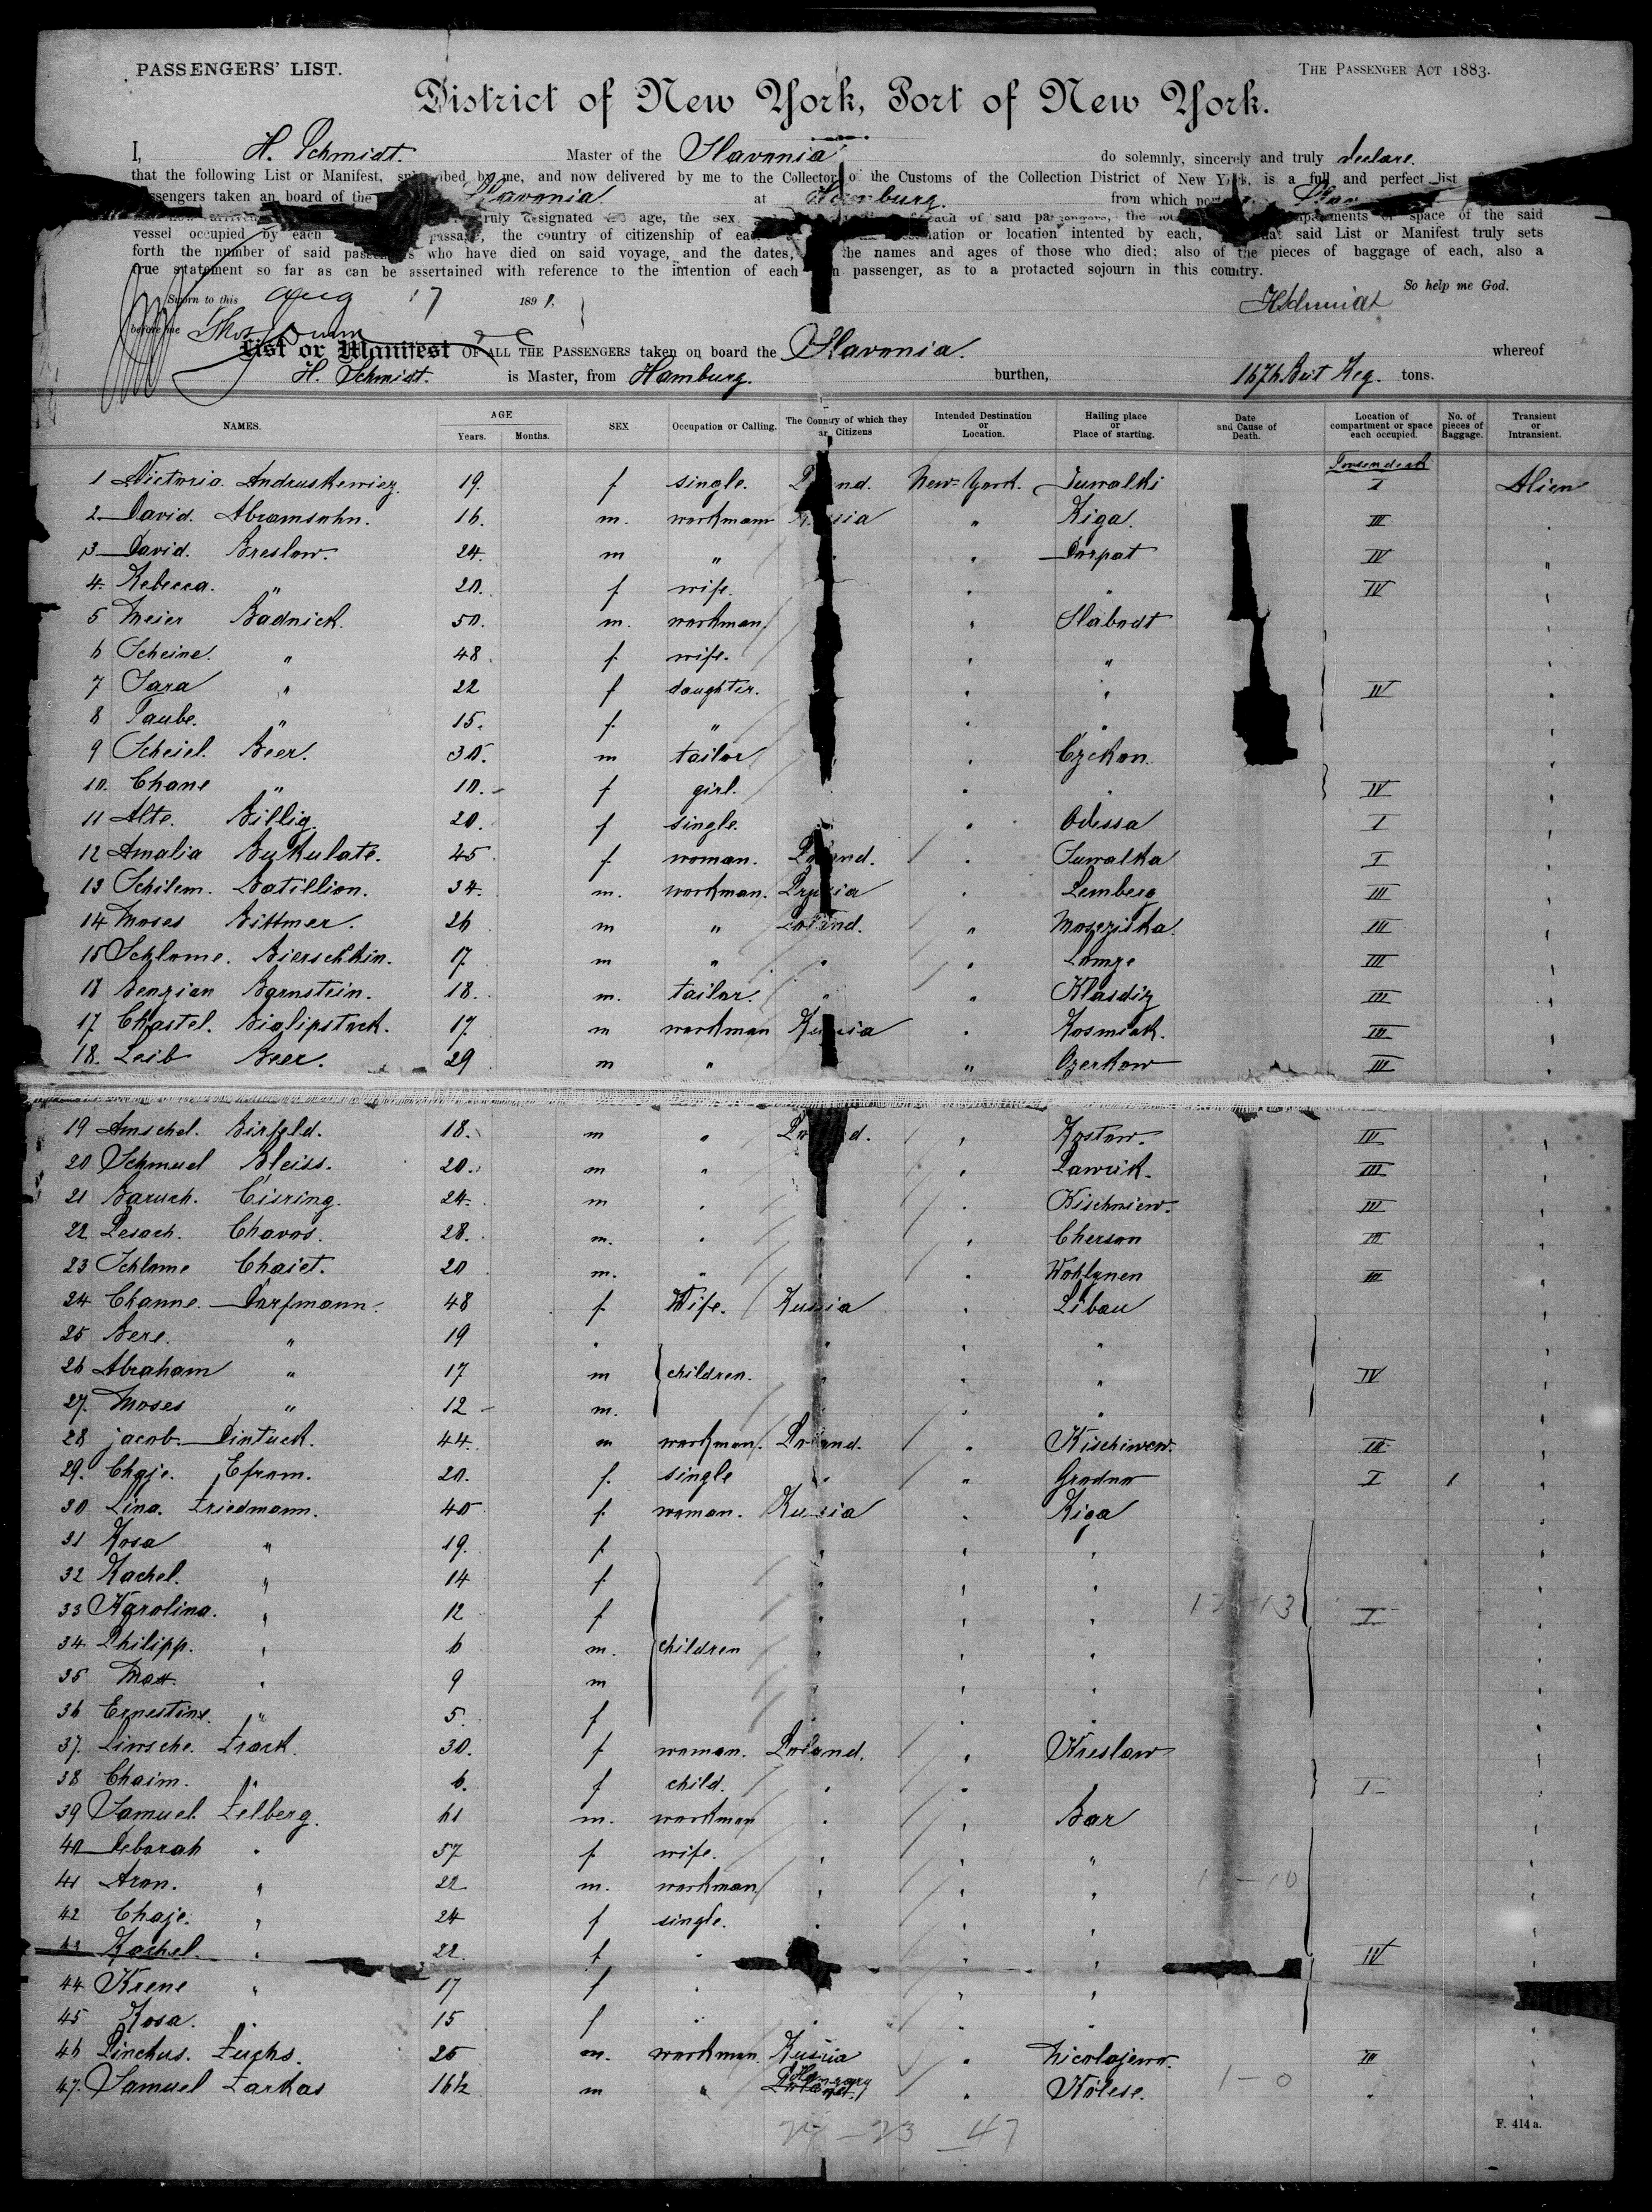 PASSENGERS' LIST.
THE PASSENGER ACT 1883.
District of New York, Port of New York.
I, H. Schmidt. Master of the Slavonia do solemnly, sincerely and truly declare.
that the following List or Manifest, subscribed by me, and now delivered by me to the Collector of the Customs of the Collection District of New York, is a full and perfect list
passengers taken an board of the Slavonia at Hamburg. from which port
truly designated age, the sex, of each of said passengers, the space of the said
vessel occupied by each passage, the country of citizenship of each destination or location intented by each, that said List or Manifest truly sets
forth the number of said passengers who have died on said voyage, and the dates, the names and ages of those who died; also of the pieces of baggage of each, also a
true statement so far as can be assertained with reference to the intention of each passenger, as to a protacted sojourn in this country.
So help me God.
Sworn to this Aug 17 1891. HSchmidt
before me
List or Manifest OF ALL THE PASSENGERS taken on board the Slavonia. whereof
H. Schmidt. is Master, from Hamburg. burthen, 1676 Reg. tons.
NAMES. AGE Years. Months. SEX Occupation or Calling. The Country of which they are Citizens Intended Destination or Location. Hailing place or Place of starting. Date and Cause of Death. Location of compartment or space each occupied. No. of pieces of Baggage. Transient or Intransient.
1 Victoria Andruskewicz. 19. f single. Poland. New-York. Suwalki I Alien
2 David. Abramsohn. 16. m. workmann Russia " Riga. III
3 David. Breslow. 24. m " " Dorpat IV "
4. Rebecca. " 20. f wife. " " IV "
5 Meier Badnick. 50. m. workman. " Slabodt "
6 Scheine. " 48 f wife. " " "
7 Sara " 22 f daughter. " " IV "
8 Taube. " 15. f. " " " "
9 Scheiel. Beer. 30. m tailor " Czckon. "
10. Chane " 10. f girl. " " IV "
11 Alte. Billig. 20. f single. " Odessa I "
12 Amalia Bukulate. 45 f woman. Poland. " Suwalka I "
13 Schilem. Batillion. 34. m. workman. " Lemberg III "
14 Moses Bittmer. 26 m " Poland. " Mosziska. III "
15 Schlome. Bierschkin. 17 m " " " Lomze III "
16 Benzian Bornstein. 18. m. tailor. " " Klasdiz III "
17 Chastel. Biglipstock. 17 m workman Russia " Kosmiak. III "
18. Leib Beer. 29 m " " Ozerkow III "
19 Amschel. Birfeld. 18. m " Poland. " Kostow. III "
20 Schmuel Bleiss. 20. m " " Lawrik. III "
21 Baruch. Cisring. 24. m " " Kischniew. III "
22 Pesach. Chavos. 28. m. " " Cherson III "
23 Schlome Chaiet. 20 m. " " Wohlynen III "
24 Channe. Dorfmann. 48 f Wife. Russia " Libau "
25 Bere. " 19 " " " " "
26 Abraham " 17 m children. " " " IV "
27. Moses " 12 m. " " " "
28 jacob. Dintuck. 44. m workman. Poland. " Kischinew. III "
29. Chaje. Efrom. 20. f. single " " Grodno I 1 "
30 Lina. Friedmann. 40 f. woman. Russia " Riga "
31 Rosa " 19. f " " " "
32 Rachel. " 14 f " " " "
33 Karolina. " 12 f " " " I "
34 Philipp. " 6 m. children " " " "
35 Max. " 9 m " " "
36 Ernestine. " 5. f " " "
37. Liwsche. Frack. 30. f woman. Poland. " Kreslaw "
38 Chaim. " 6. f child. " " I "
39 Samuel. Felberg. 61 m. workman " " Bar "
40 Deborah " 57 f wife. " " " "
41 Aron. " 22 m. workman " " " "
42 Chaje. " 24 f single. " " " "
43 Rachel. " 22. f " " " IV
44 Krene " 17 f " " "
45 Rosa. " 15 f " " " "
46 Pinchus. Fuchs. 25 m. workman. Russia " Nicolajew. III "
47. Samuel Farkas 16½ m " Hungary " Kölese. " "
1 - 0
24 - 23 - 47
F. 414 a.